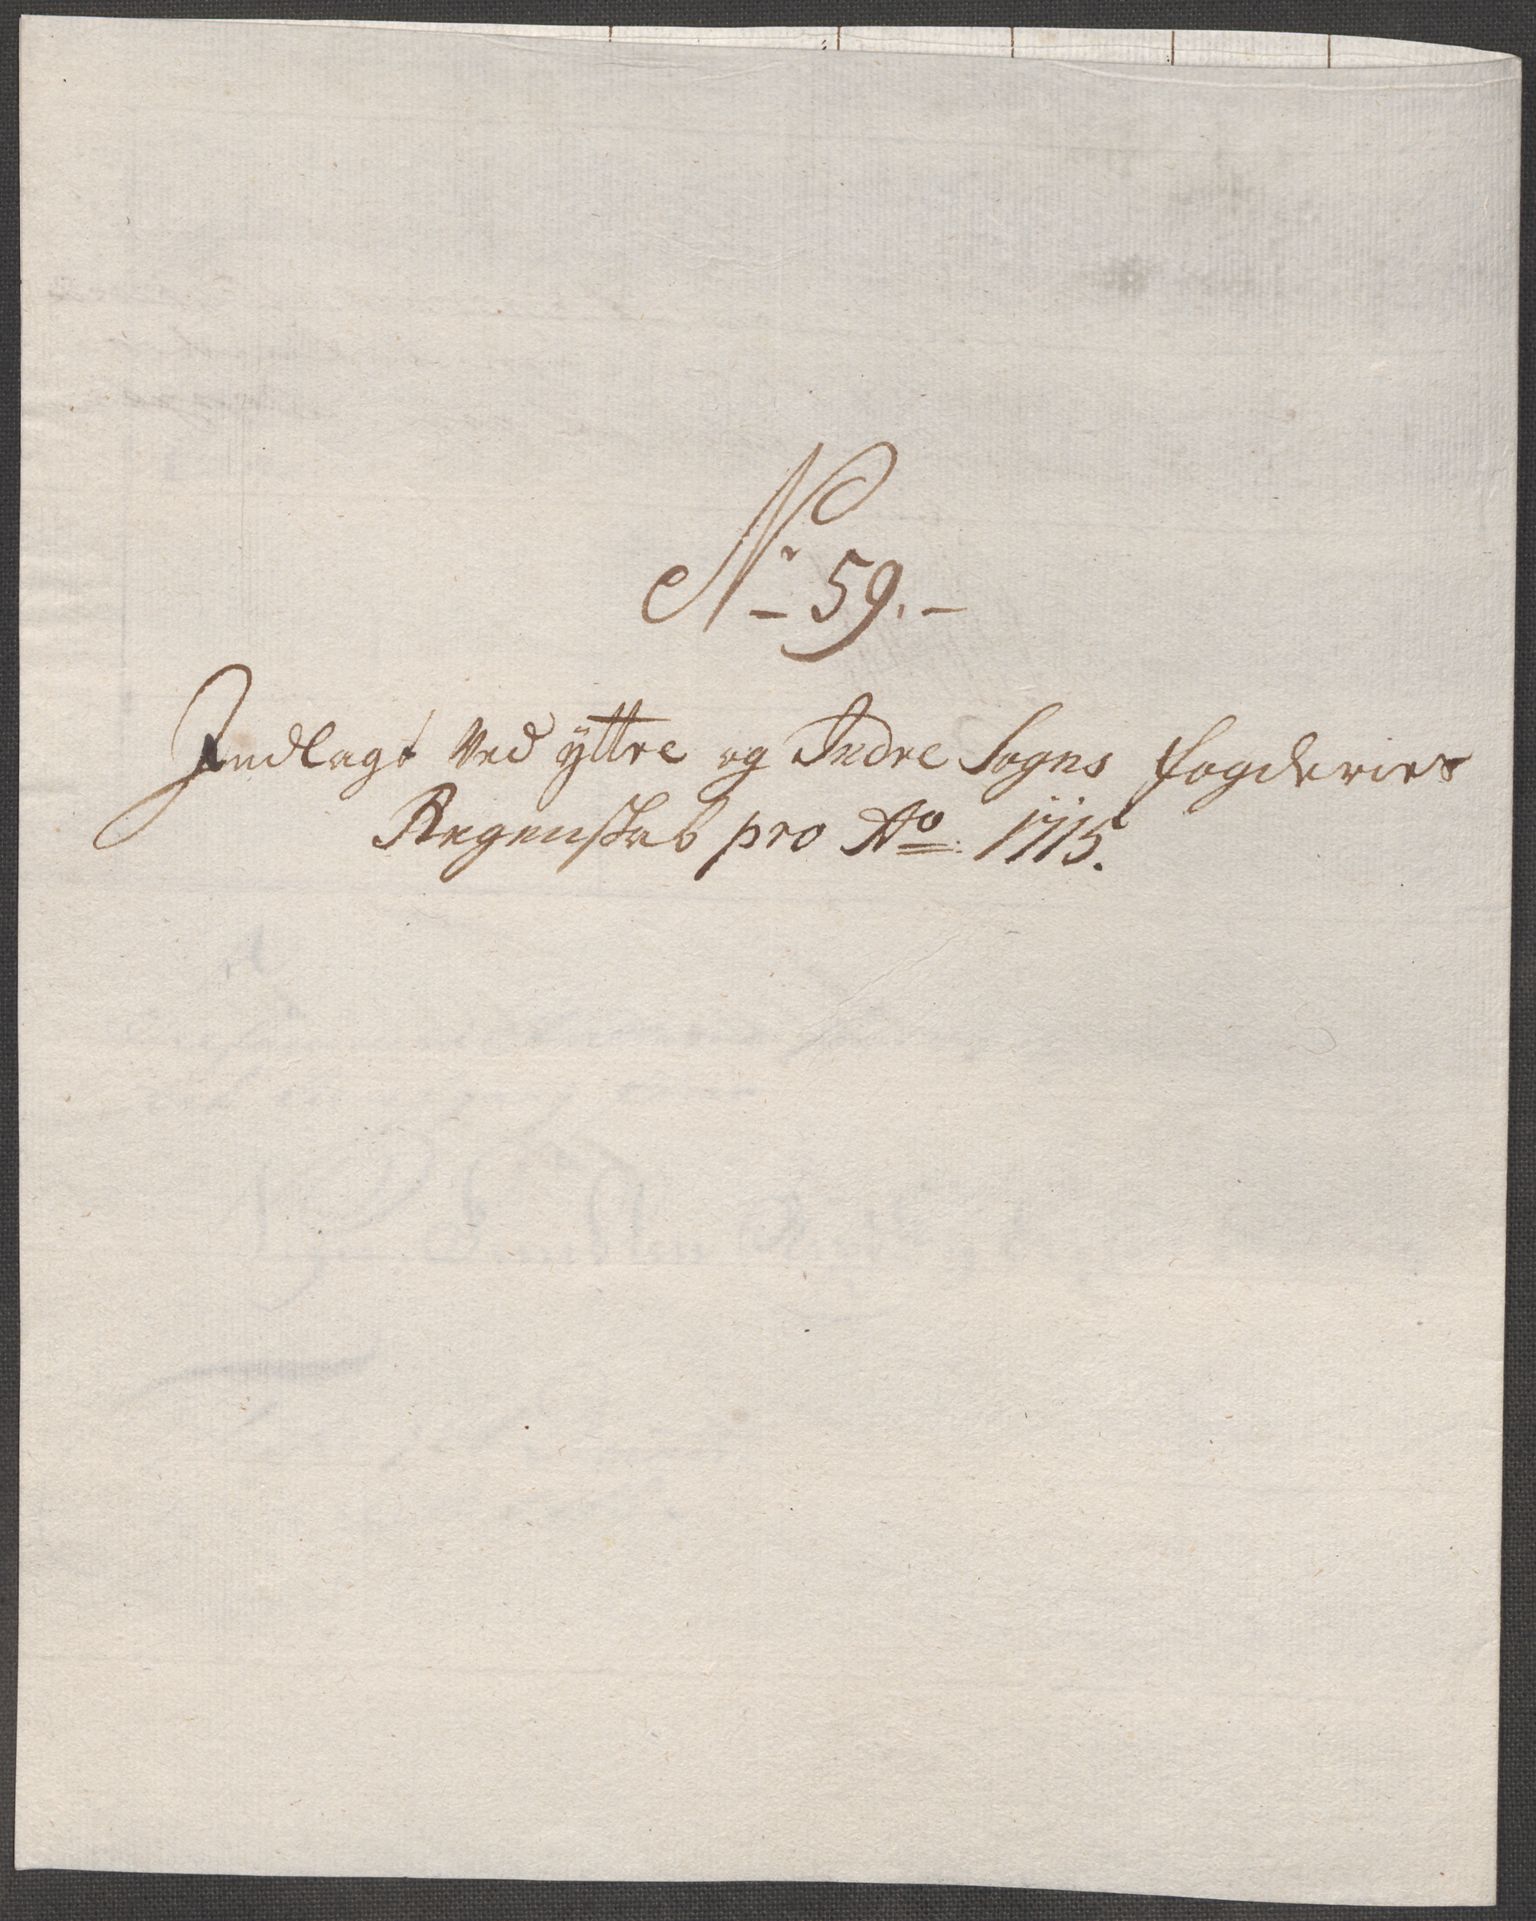 Nr 59.
Indlagt Ved ÿttre og Indre Sogns fogderies
Regenskab pro Ao. 1715.